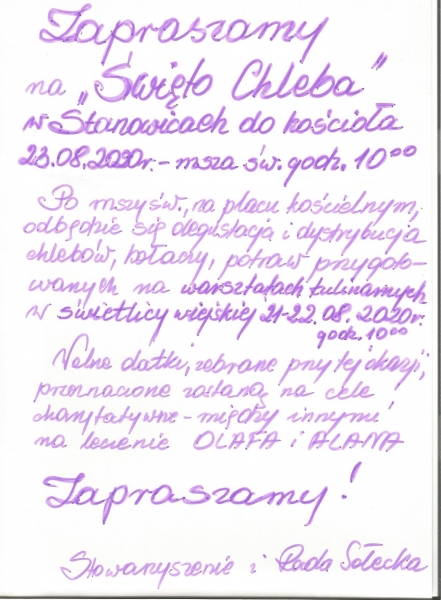 Zapraszamy
na „Święto Chleba"
w Stanowicach do kościoła
23.08.2020r. - msza św. godz. 10⁰⁰
Po mszy św., na placu kościelnym,
odbędzie się degustacja i dystrybucja
chlebów, kołaczy, potraw przygoto-
wanych na warsztatach kulinarnych
w świetlicy wiejskiej 21-22.08.2020r.
godz. 10⁰⁰
Wolne datki, zebrane przy tej okazji,
przeznaczone zostaną na cele
charytatywne - między innymi
na leczenie OLAFA i ALANA
Zapraszamy!
Stowarzyszenie i Rada Sołecka